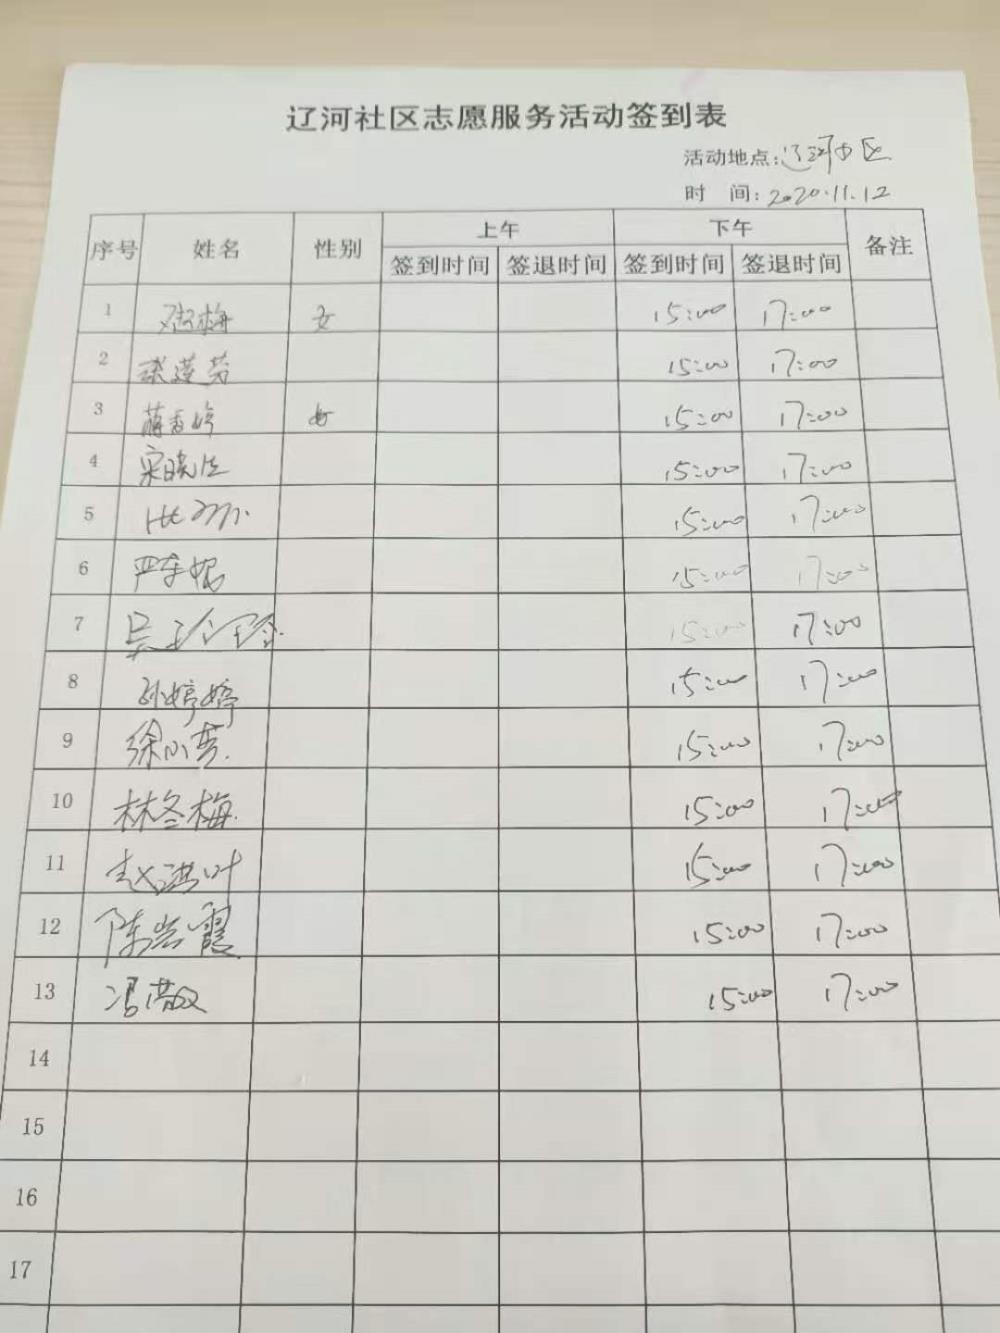 辽河社区志愿服务活动签到表
活动地点:辽河社区
时 间:2020.11.12
序号 姓名 性别 上午 下午 备注
签到时间 签退时间 签到时间 签退时间
1 女 15:00 17:00
2 张莲芳 15:00 17:00
3 女 15:00 17:00
4 15:00 17:00
5 15:00 17:00
6 15:00 17:00
7 15:00 17:00
8 孙婷婷 15:00 17:00
9 15:00 17:00
10 林冬梅 15:00 17:00
11 赵洪叶 15:00 17:00
12 陈岩霞 15:00 17:00
13 15:00 17:00
14
15
16
17